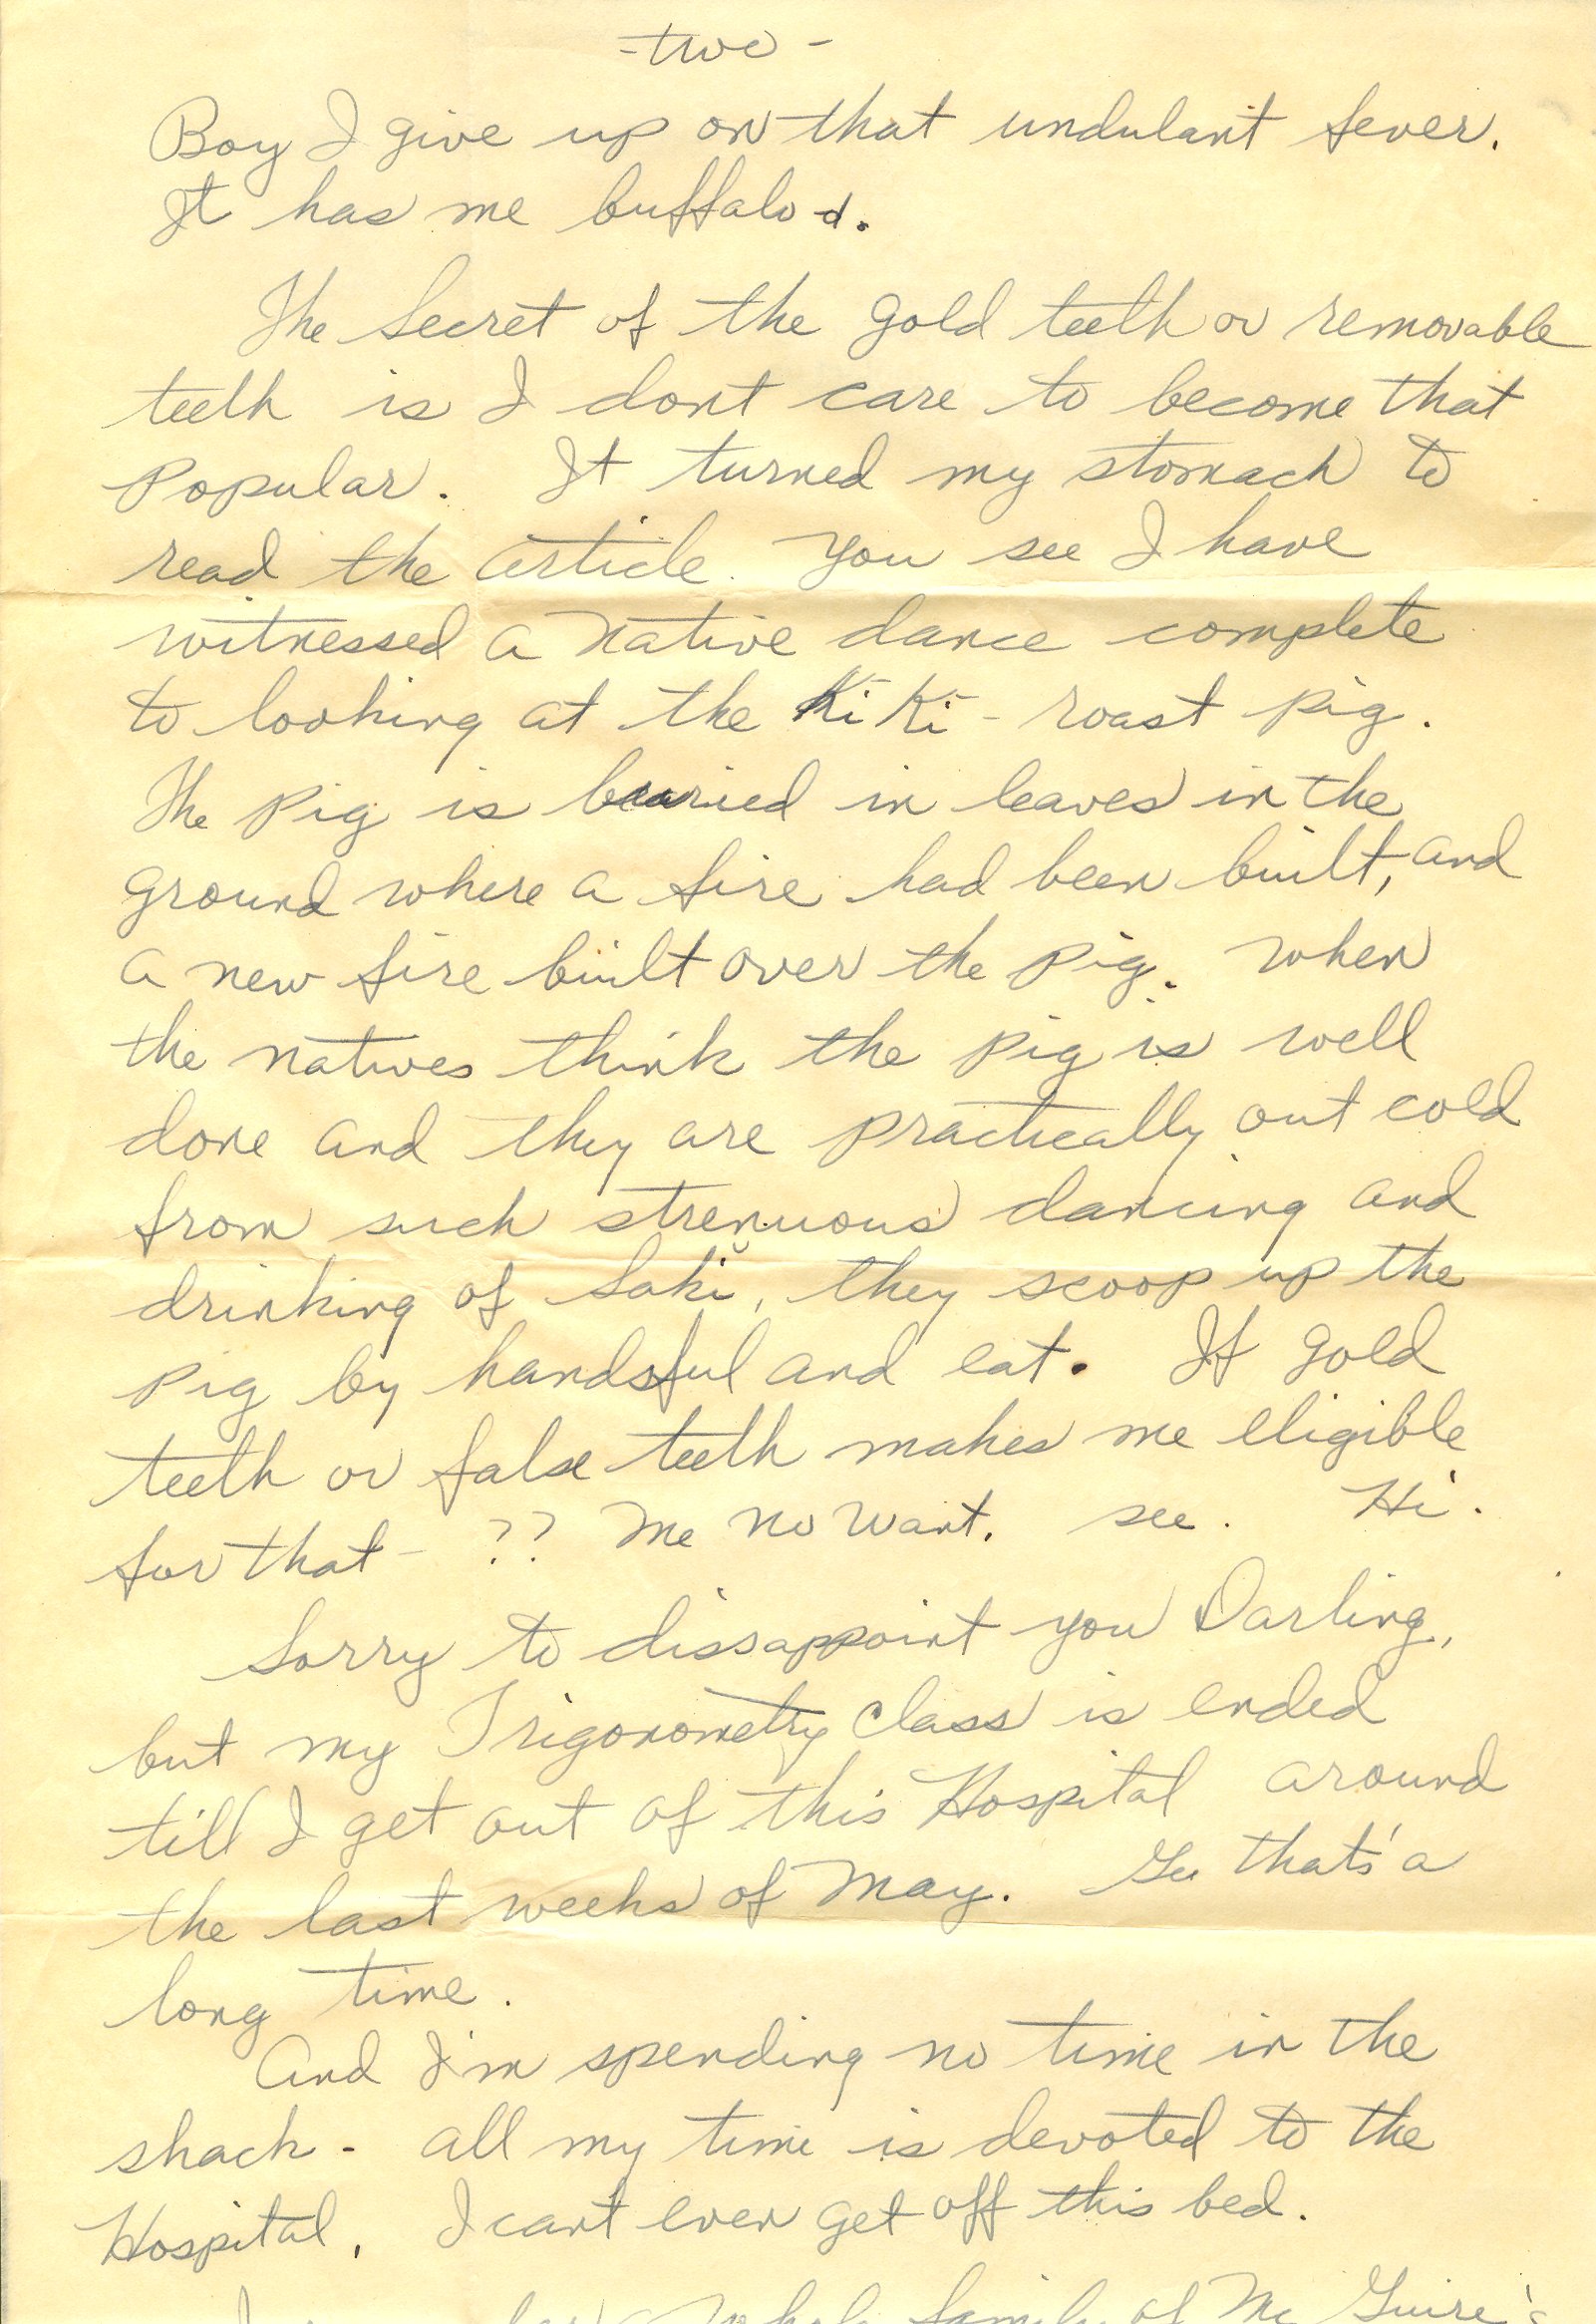 -two-
Boy I give up on that undulant fever.
It has me buffalo-d.
The Secret of the gold teeth or removable
teeth is I dont care to become that
popular. It turned my stomach to
read the article. You see I have
witnessed a native dance complete
to looking at the Ki Ki - roast pig.
The pig is buried in leaves in the
ground where a fire had been built, and
a new fire built over the pig. When
the natives think the pig is well
done and they are practically out cold
from such strenuous dancing and
drinking of Saki, they scoop up the
pig by handsful and eat. If gold
teeth or false teeth makes me eligible
for that - ?? Me no want. see. Hi.
Sorry to dissappoint you Darling,
but my Trigonometry class is ended
till I get out of this Hospital around
the last weeks of May. Gee that's a
long time.
And I'm spending no time in the
shack - all my time is devoted to the
Hospital. I cant even get off this bed.
whole family of Mc Guire's